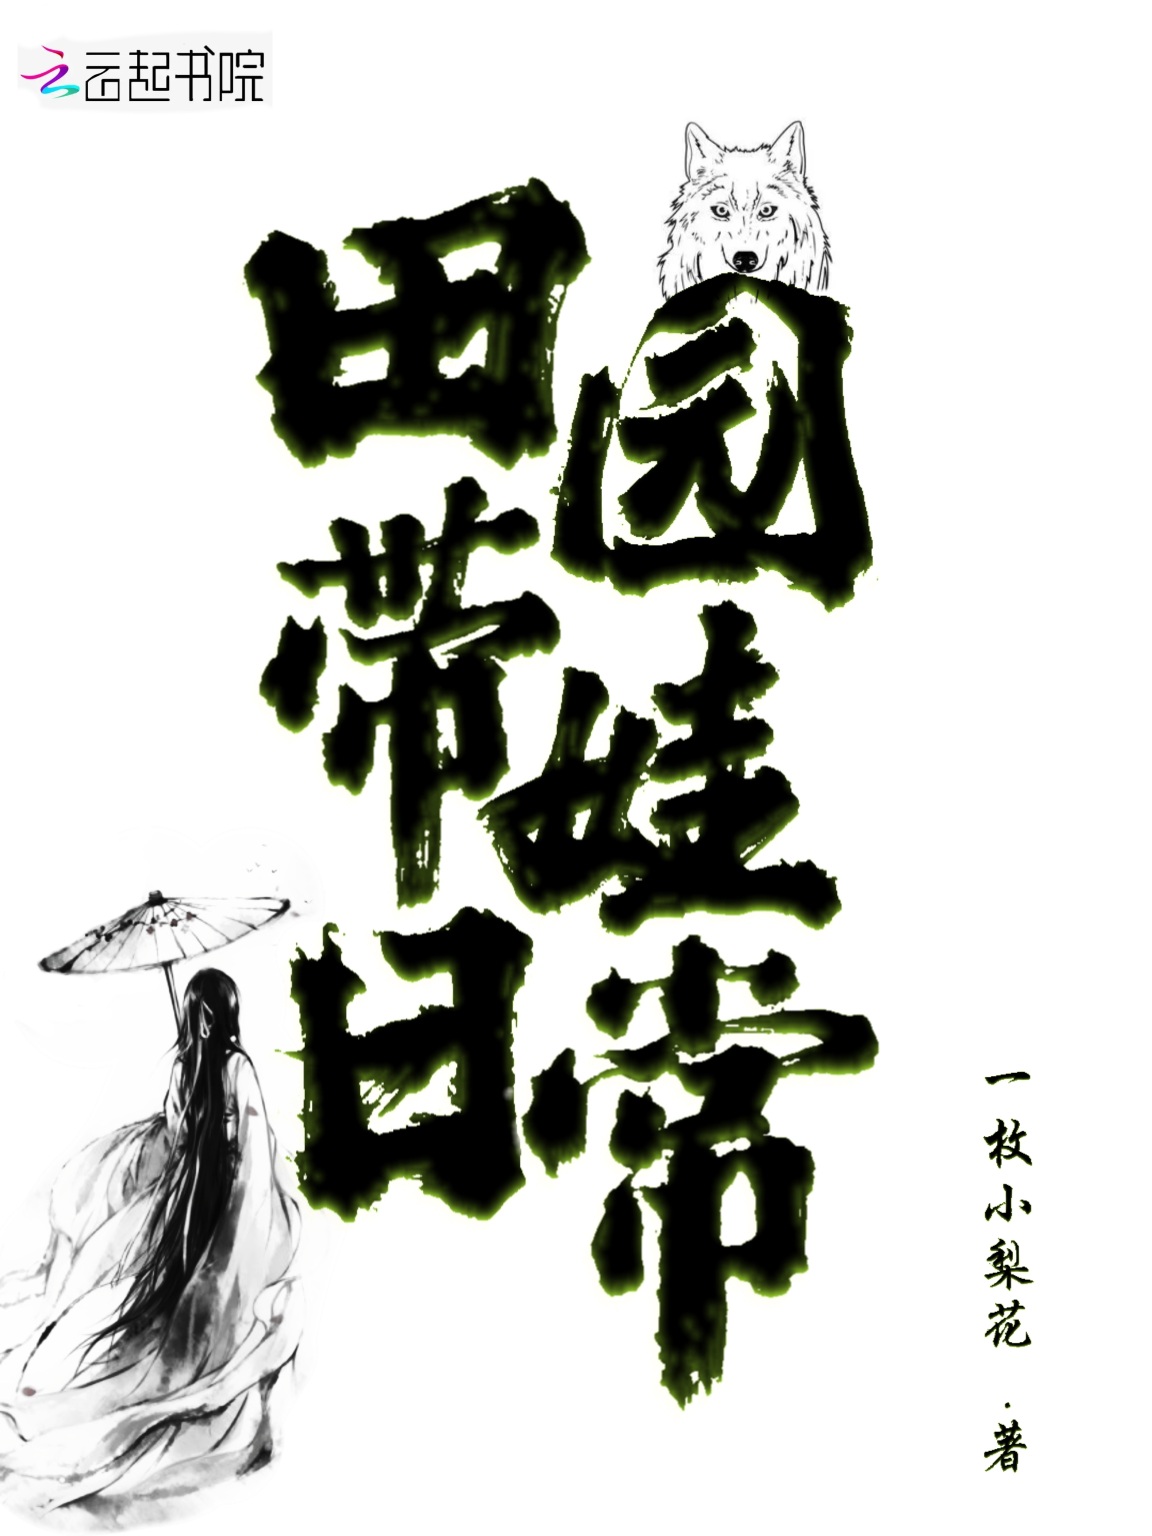 云起书院
田园
带娃
日常
一枚小梨花 · 著